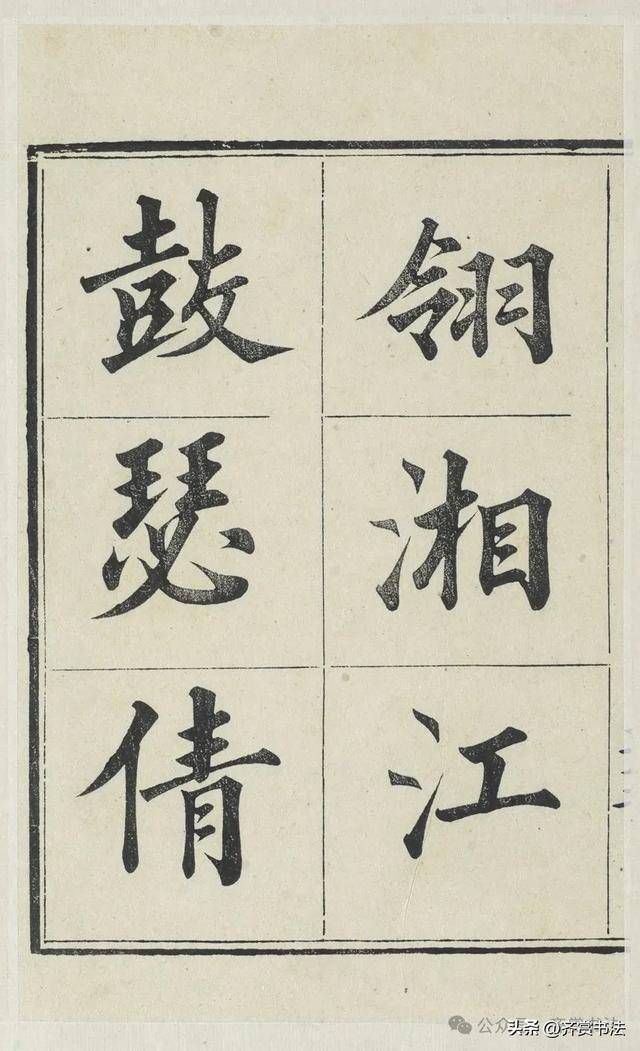 翎湘江
鼓瑟倩
公众号 齐赏书法
头条 @齐赏书法